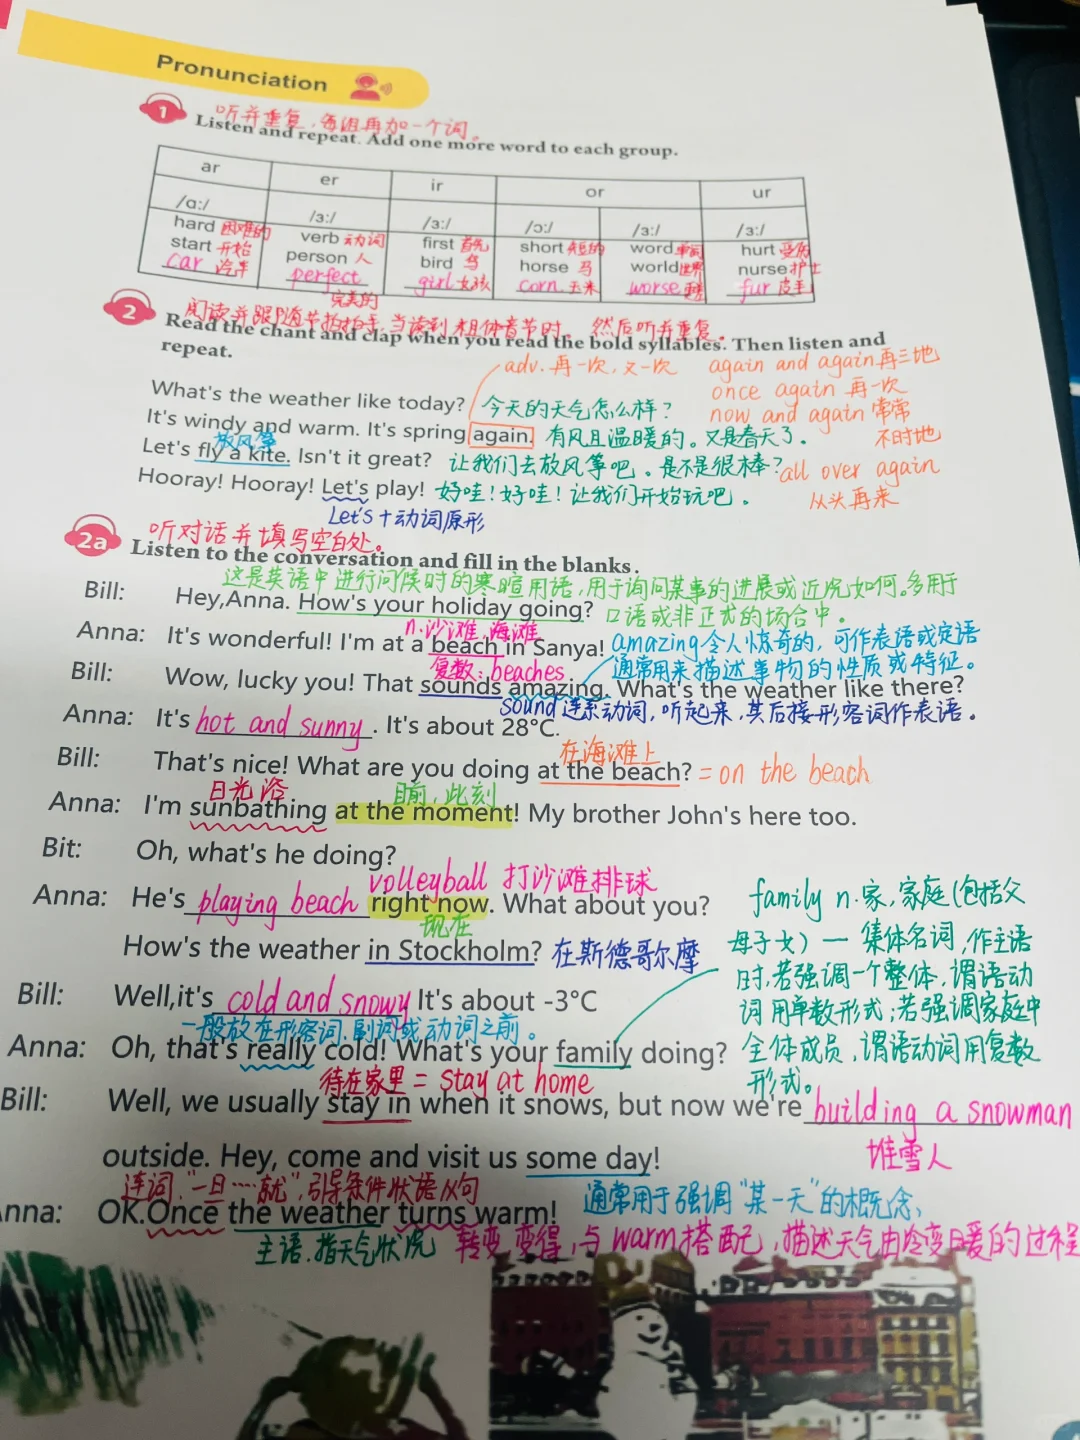 Pronunciation
1 听并重复,每组再加一个词。
Listen and repeat. Add one more word to each group.
ar er ir or ur
/ɑː/ /ɜː/ /ɜː/ /ɔː/ /ɜː/ /ɜː/
hard 困难的 verb 动词 first 首先 short 短的 word 单词 hurt 受伤
start 开始 person 人 bird 鸟 horse 马 world 世界 nurse 护士
car 汽车 perfect girl 女孩 corn 玉米 worse fur 皮毛
完美的
2 阅读并跟随节拍拍手,当读到粗体音节时。然后听并重复。
Read the chant and clap when you read the bold syllables. Then listen and
repeat.
adv. 再一次,又一次 again and again 再三地
once again 再一次
What's the weather like today? 今天的天气怎么样? now and again 常常
不时地
It's windy and warm. It's spring again. 有风且温暖的。又是春天了。
放风筝
Let's fly a kite. Isn't it great? 让我们去放风筝吧。是不是很棒? all over again
从头再来
Hooray! Hooray! Let's play! 好哇!好哇!让我们开始玩吧。
Let's+动词原形
2a 听对话并填写空白处。
Listen to the conversation and fill in the blanks.
这是英语中进行问候时的寒暄用语,用于询问某事的进展或近况如何。多用于
口语或非正式的场合中。
Bill: Hey,Anna. How's your holiday going?
n.沙滩,海滩
Anna: It's wonderful! I'm at a beach in Sanya! amazing令人惊奇的,可作表语或定语
复数:beaches 通常用来描述事物的性质或特征。
Bill: Wow, lucky you! That sounds amazing. What's the weather like there?
sound 连系动词,听起来,其后接形容词作表语。
Anna: It's hot and sunny. It's about 28°C.
在海滩上
Bill: That's nice! What are you doing at the beach? = on the beach
日光浴 目前,此刻
Anna: I'm sunbathing at the moment! My brother John's here too.
Bit: Oh, what's he doing?
volleyball 打沙滩排球
Anna: He's playing beach right now. What about you?
现在
How's the weather in Stockholm? 在斯德哥尔摩
family n.家,家庭(包括父
母子女)— 集体名词,作主语
时,若强调一个整体,谓语动
词用单数形式;若强调家庭中
全体成员,谓语动词用复数
形式。
Bill: Well,it's cold and snowy It's about -3°C
一般放在形容词、副词或动词之前。
Anna: Oh, that's really cold! What's your family doing?
待在家里 = stay at home
Bill: Well, we usually stay in when it snows, but now we're building a snowman
堆雪人
outside. Hey, come and visit us some day!
连词,"一旦……就",引导条件状语从句 通常用于强调"某一天"的概念,
nna: OK.Once the weather turns warm!
主语,指天气状况 转变,变得,与warm搭配,描述天气由冷变暖的过程